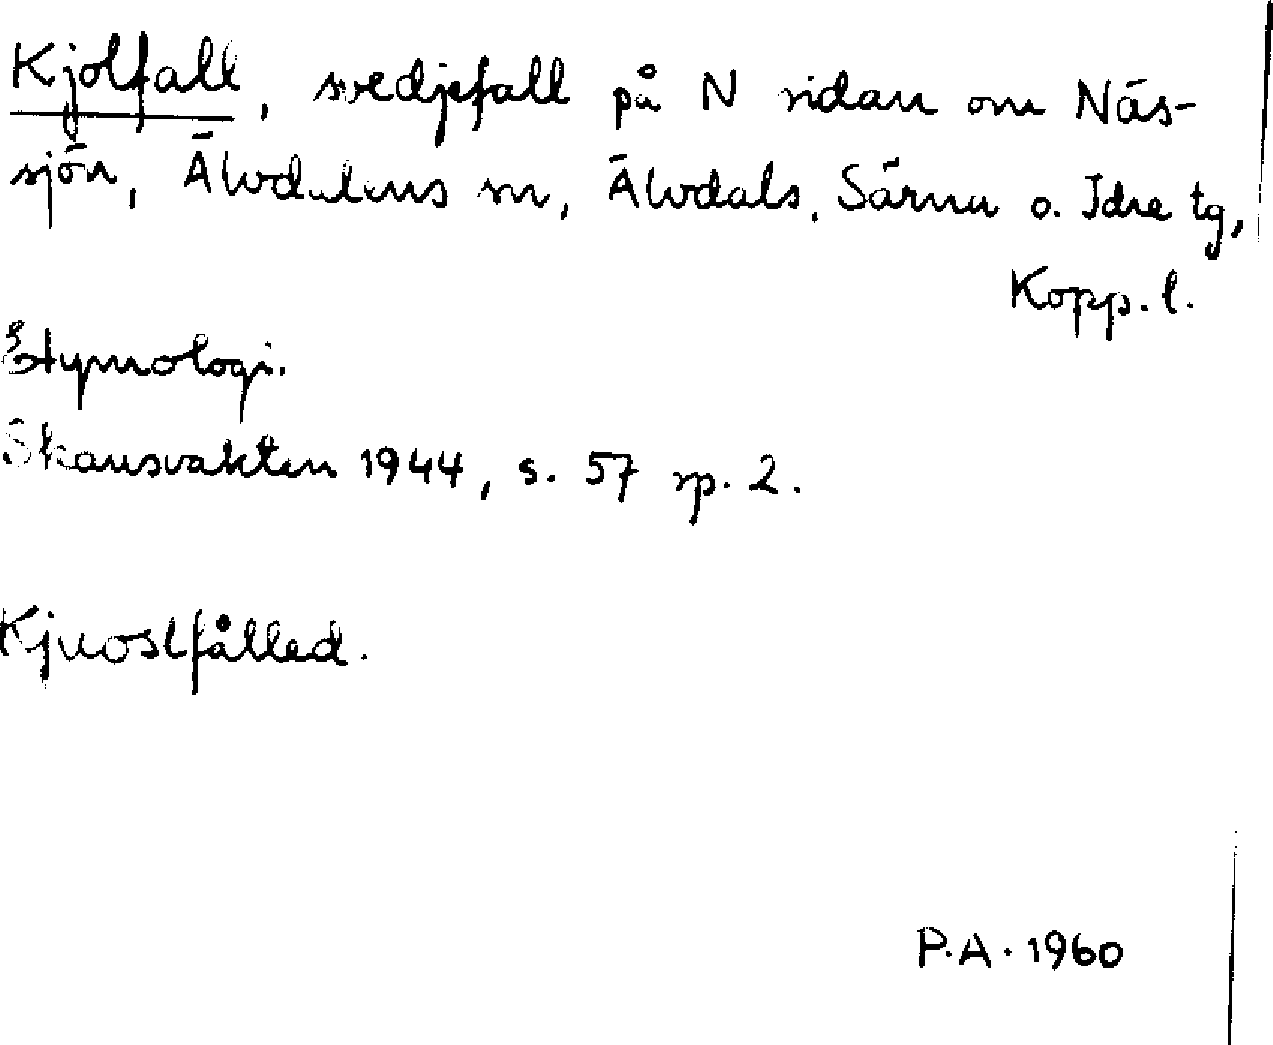 Kjolfall, svedjefall på N sidan om Näs-
sjön, Älvdalens sn, Älvdals, Särna o. Idre tg,
Kopp. l.
Etymologi.
Skansvakten 1944, s. 57 sp. 2.
Kjuoslfålled.
P.A. 1960